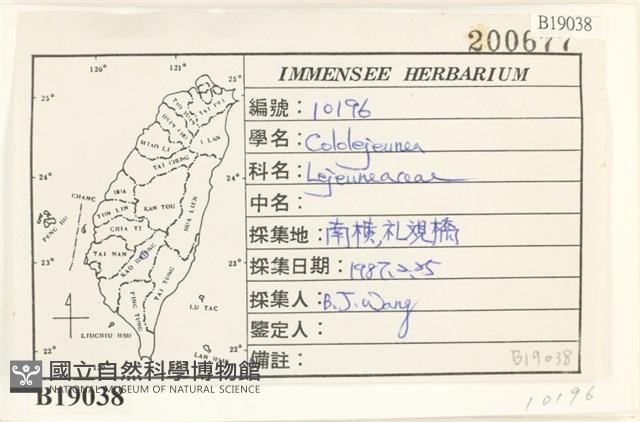 B19038
200677
IMMENSEE HERBARIUM
編號：10196
學名：Cololejeunea
科名：Lejeuneaceae
中名：
採集地：南橫,礼視橋
採集日期：1987.2.25
採集人：B.J.Wang
鑒定人：
備註：
B19038
120°
121°
25°
25°
TAI PEI
I LAN
MIAO LI
TAI CHUNG
24°
24°
CHANG HUA
NAN TOU
HUA LIEN
YUN LIN
PENG HU
CHIA YI
TAI NAN
KAO HSIUNG
TAI TUNG
23°
23°
PING TUNG
LU TAO
LIUCHIU HSU
22°
22°
LAN HSU
國立自然科學博物館
NATIONAL MUSEUM OF NATURAL SCIENCE
B19038
10196